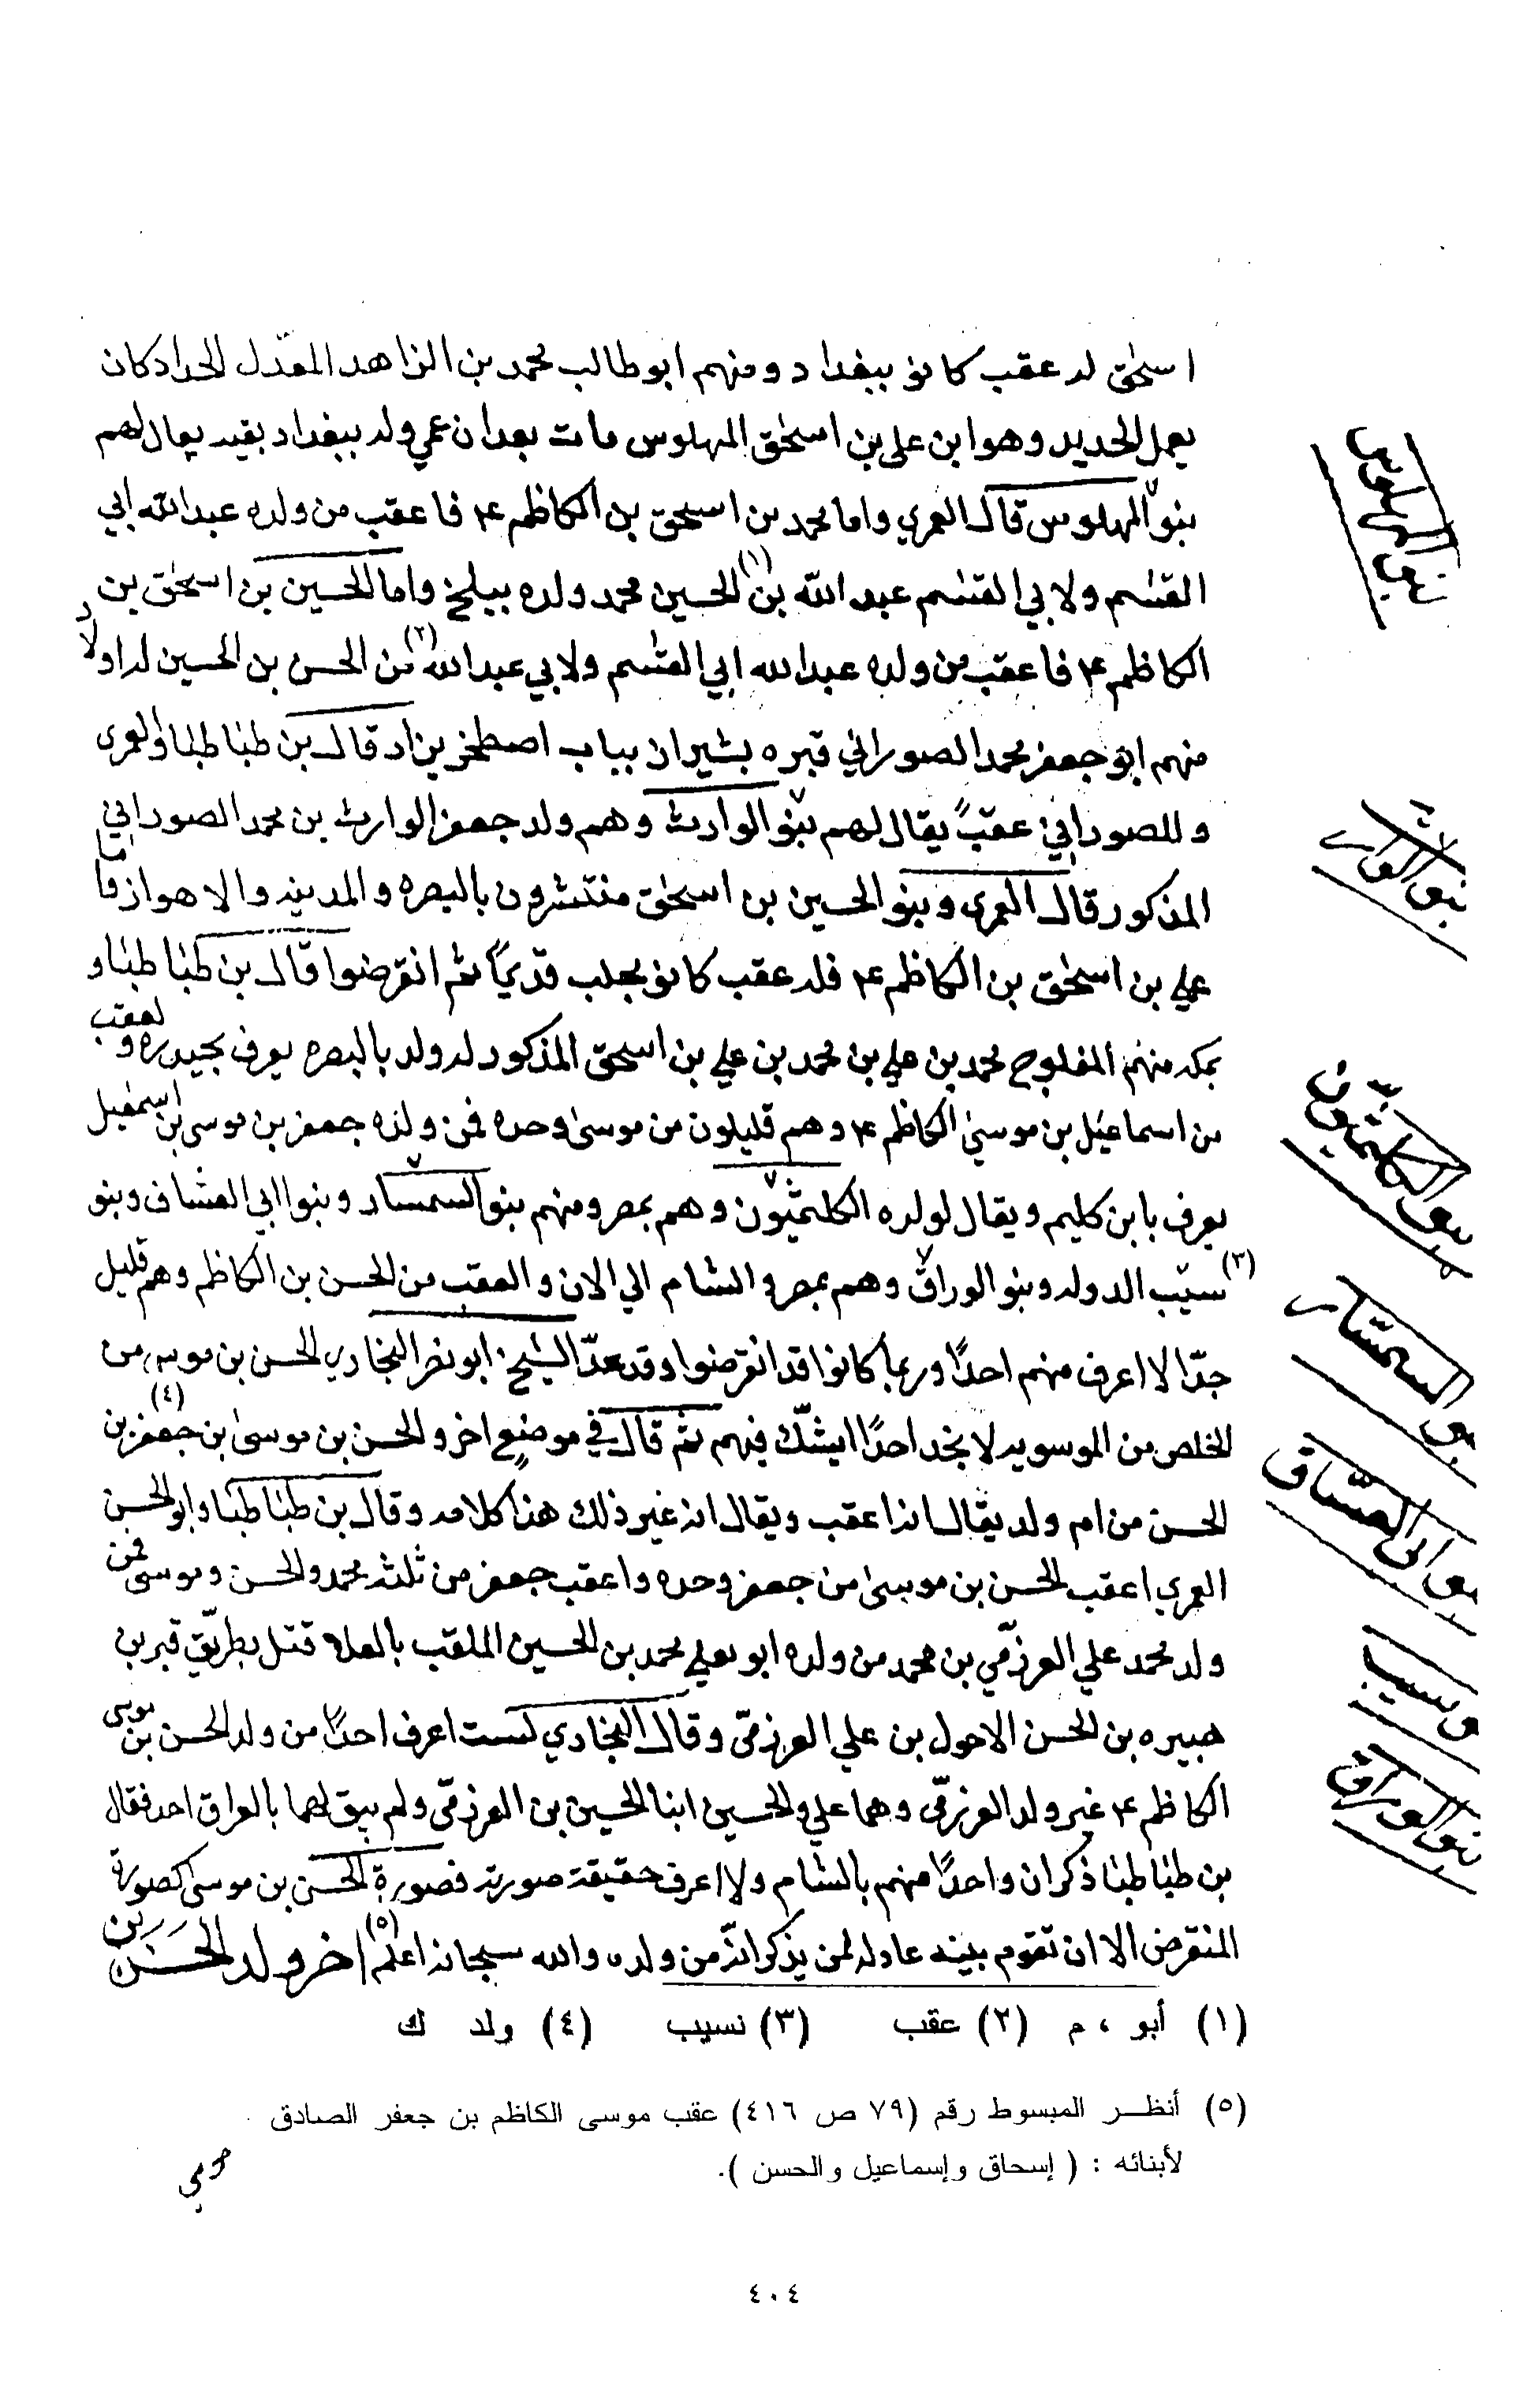 اسحٰق له عقب كانو ببغداد ومنهم ابو طالب محمد بن الزاهد المعدل الحداد كان
يعمل الحديد وهو ابن على بن اسحٰق المهلوس مات بعد ان عمي وله ببغداد بقيه يقال لهم
بنو المهلوس قال العمري واما محمد بن اسحٰق بن الكاظم ع فاعقب من ولده عبدالله ابي
القٰسم ولابي القٰسم عبد الله بن (١) الحسين محمد ولده ببلخ واما الحسين بن اسحٰق بن
الكاظم ع فاعقب من ولده عبدالله ابي القٰسم ولابي عبدالله (٢) من الحسن بن الحسين له اولاد
منهم ابو جعفر محمد الصوراني قبره بشيراز بباب اصطخر قال بن طباطبا والعمرى
وللصوراني عقبً يقال لهم بنو الوارث وهم ولد جعفر الوارث بن محمد الصوراني
المذكور قال العمرى وبنو الحسين بن اسحٰق منتشرون بالبصره والمدينه والاهواز واما
علي بن اسحٰق بن الكاظم ع فله عقب كانو بحلب قديمًا ثم انقرضوا قال بن طباطبا و
بمكه منهم المفلوج محمد بن علي بن محمد بن علي بن اسحق المذكور له ولد بالبصره يعرف بحيدره والعقب
من اسماعيل بن موسىٰ الكاظم ع وهم قليلون من موسىٰ وحده فمن ولده جعفر بن موسى بن اسمعيل
يعرف بابن كليم ويقال لولده الكلثميّون وهم بمصر ومنهم بنو السمسار وبنوا ابي العساف وبنو
(٣) سيّب الدوله وبنو الوراق وهم بمصر والشام الي الان والعقب من الحسن بن الكاظم وهم قليل
جدّا لا اعرف منهم احدًا وربما كانوا قد انقرضوا وقد عدّ الشيخ ابو نصر البخاري الحسن بن موسى من
الخلص من الموسويه لا يجد احدًا يشكّ فيهم ثم قال في موضعٍ اخر والحسن بن موسىٰ بن (٤) جعفر بن
الحسن من ام ولد يقال انه اعقب ويقال انه غير ذلك هذا كلامه وقال بن طباطبا وابو الحسن
العمري اعقب الحسن بن موسىٰ من جعفر وحده واعقب جعفر من ثلثه محمد والحسن وموسى فمن
ولد محمد علي العرزمّي بن محمد من ولده ابو يعلي محمد بن الحسين الملقب بالعلا قتل بطريق قبر بن
هبيره بن الحسن الاحول بن علي العرزمّى وقال البخاري لست اعرف احدًا من ولد الحسن بن موسى
الكاظم ع غير ولد العرزمّى وهما علي والحسين ابنا الحسين بن العرزمّى ولم يبق لهما بالعراق احد فقال
بن طباطبا ذكر ان واحدًا منهم بالشام ولا اعرف حقيقة صورته فصورة الحسن بن موسىٰ كصورة
المنقرض الا ان تقوم بينه عادله لمن يذكر انّه من ولده والله سبحانه اعلم (٥) اخر ولد الحسن بن
بنو المهلوس
بنو الوارث
بنو الكلثميّون
بنو السمسّار
بنو ابي العسّاف
بنو سيب
بنو الوراق
(١) أبو ، م (٢) عقب (٣) نسيب (٤) ولد ك
(٥) أنظـر المبسوط رقم (٧٩ ص ٤١٦) عقب موسى الكاظم بن جعفر الصادق
لأبنائه : ( إسحاق وإسماعيل والحسن ).
٤٠٤